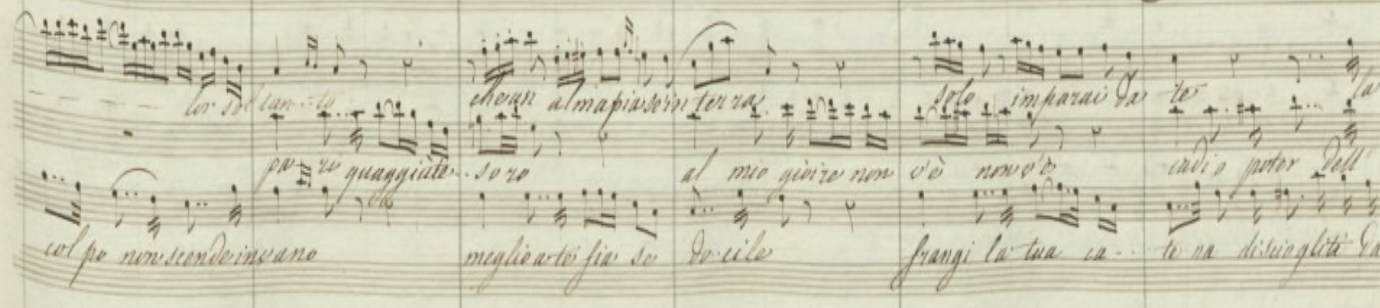 lor sol tan - to che un alma pia se in terra solo imparai da te la
pa - re quaggiù te - soro al mio gioire non v'è non v'è ed io poter dell'
colpo non scende invano meglio a te fia se docile frangi la tua ca - te na disciogliti da